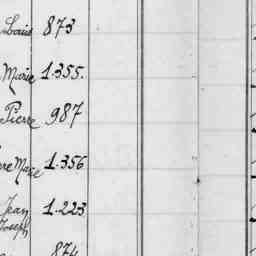 Louis 873
Marie 1.355.
Pierre 987
re Marie 1.356
Jean 1.223
Joseph
874